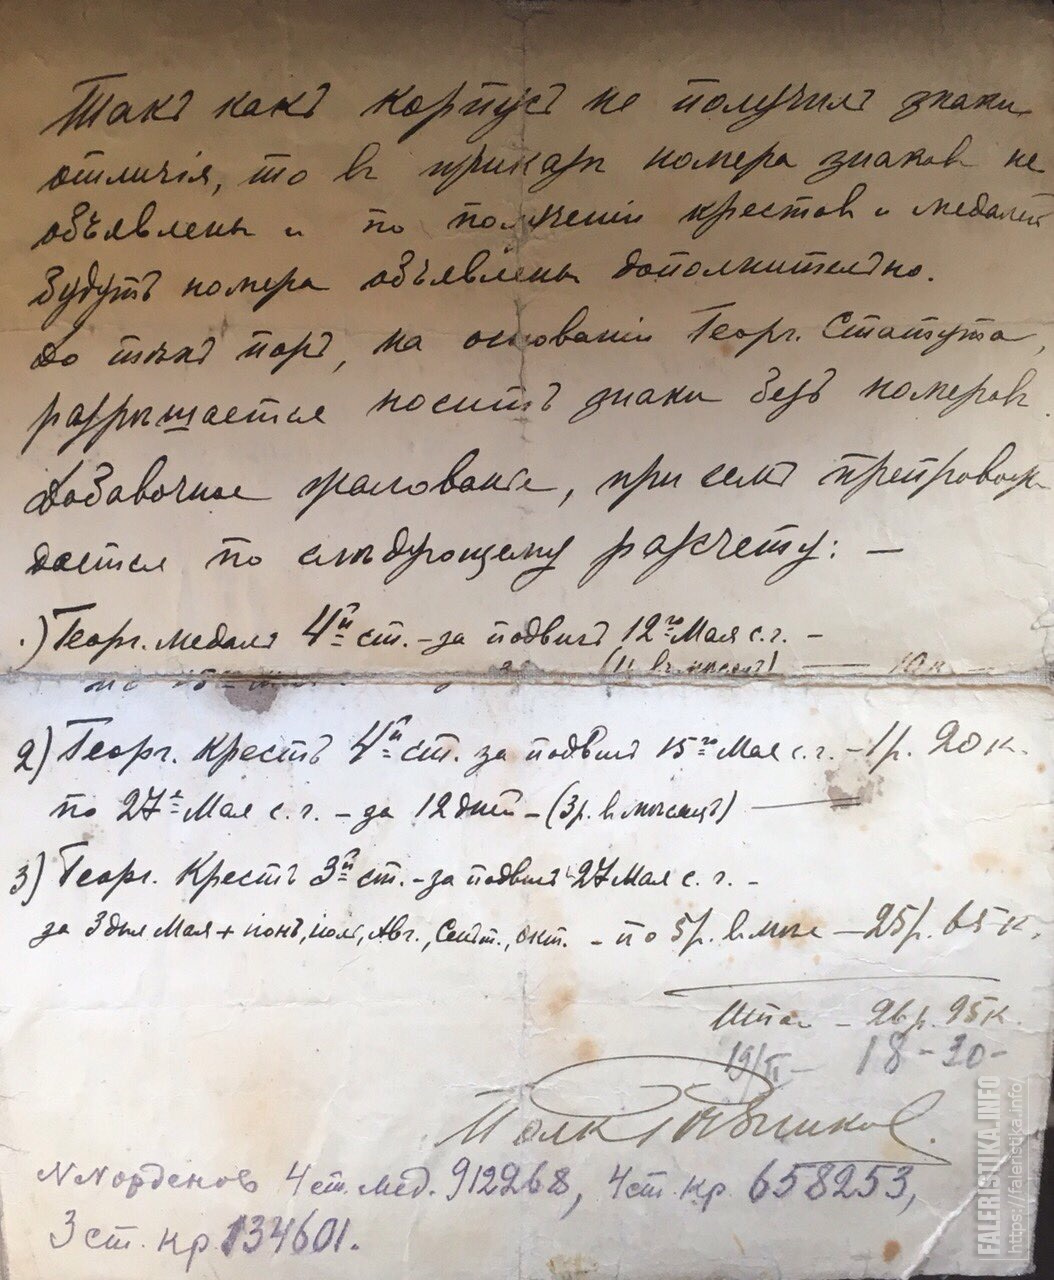 Такъ какъ корпусъ не получилъ знаки
отличія, то въ приказѣ номера знаковъ не
объявлены и по полученіи крестов и медалей
будутъ номера объявлены дополнительно.
До тѣхъ поръ, на основаніи Георг. Статута,
разрѣшается носить знаки безъ номеровъ.
Добавочное жалованіе, при семъ препровож
дается по слѣдующему разсчету: —
.) Георг. медаль 4й ст. – за подвигъ 12го Мая с. г. –
по 15 за (в мѣсяцъ) — 10 к —
2) Георг. Крестъ 4й ст. за подвигъ 15го Мая с. г. – 1 р. 20 к.
по 27е Мая с. г. – за 12 дней – (3 р. в мѣсяцъ) —
3) Георг. Крестъ 3й ст. – за подвигъ 27 Мая с. г. –
за 3 дня Мая + іюнь, іюль, Авг., Сент., окт. – по 5 р. в мѣс – 25 р. 65 к.
Итого – 26 р. 95 к.
19/II – 18 – 30 –
Полк
NN орденов 4 ст. мед. 912268, 4 ст. кр. 658253,
3 ст. кр. 134601.
FALERISTIKA.INFO
https://faleristika.info